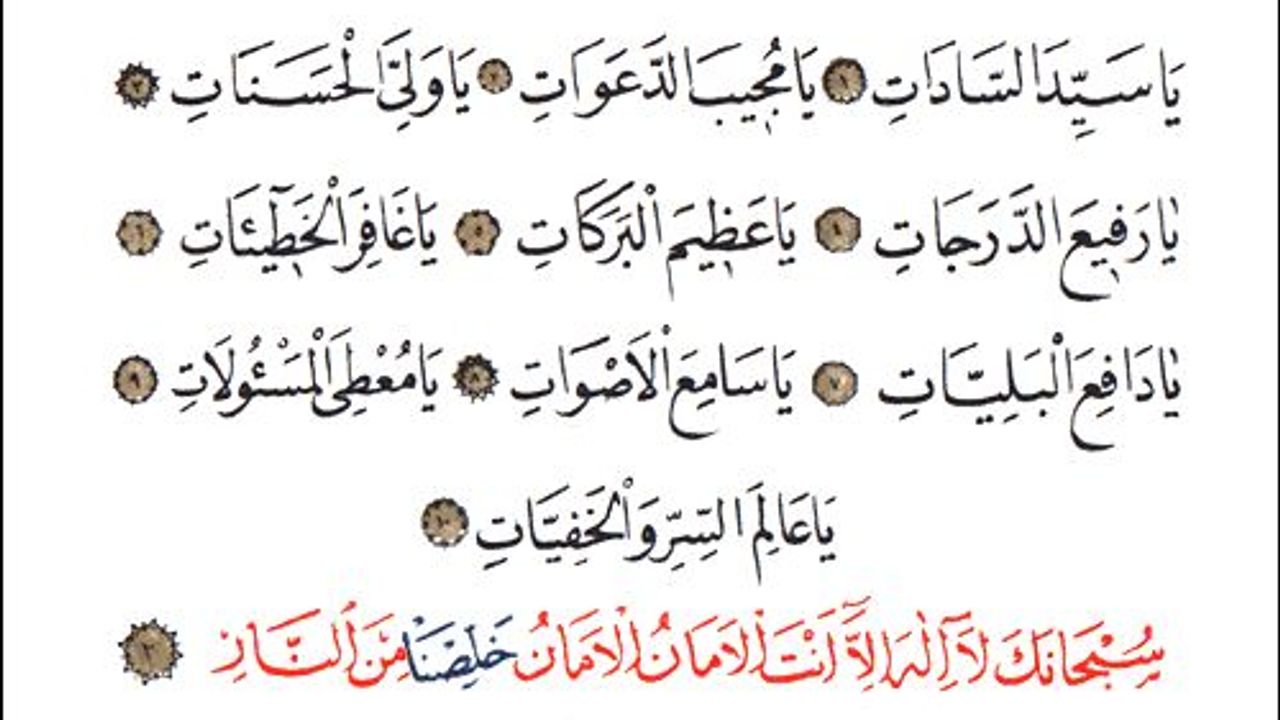 يَا سَيِّدَ السَّادَاتِ ١ يَا مُجِيبَ الدَّعَوَاتِ ٢ يَا وَلِيَّ الْحَسَنَاتِ ٣
يَا رَفِيعَ الدَّرَجَاتِ ٤ يَا عَظِيمَ الْبَرَكَاتِ ٥ يَا غَافِرَ الْخَطِيٓئَاتِ ٦
يَا دَافِعَ الْبَلِيَّاتِ ٧ يَا سَامِعَ الْاَصْوَاتِ ٨ يَا مُعْطِيَ الْمَسْئُولَاتِ ٩
يَا عَالِمَ السِّرِّ وَالْخَفِيَّاتِ ١٠
سُبْحَانَكَ لَآ اِلٰهَ اِلَّآ اَنْتَ الْاَمَانُ الْاَمَانُ خَلِّصْنَا مِنَ النَّارِ ٢